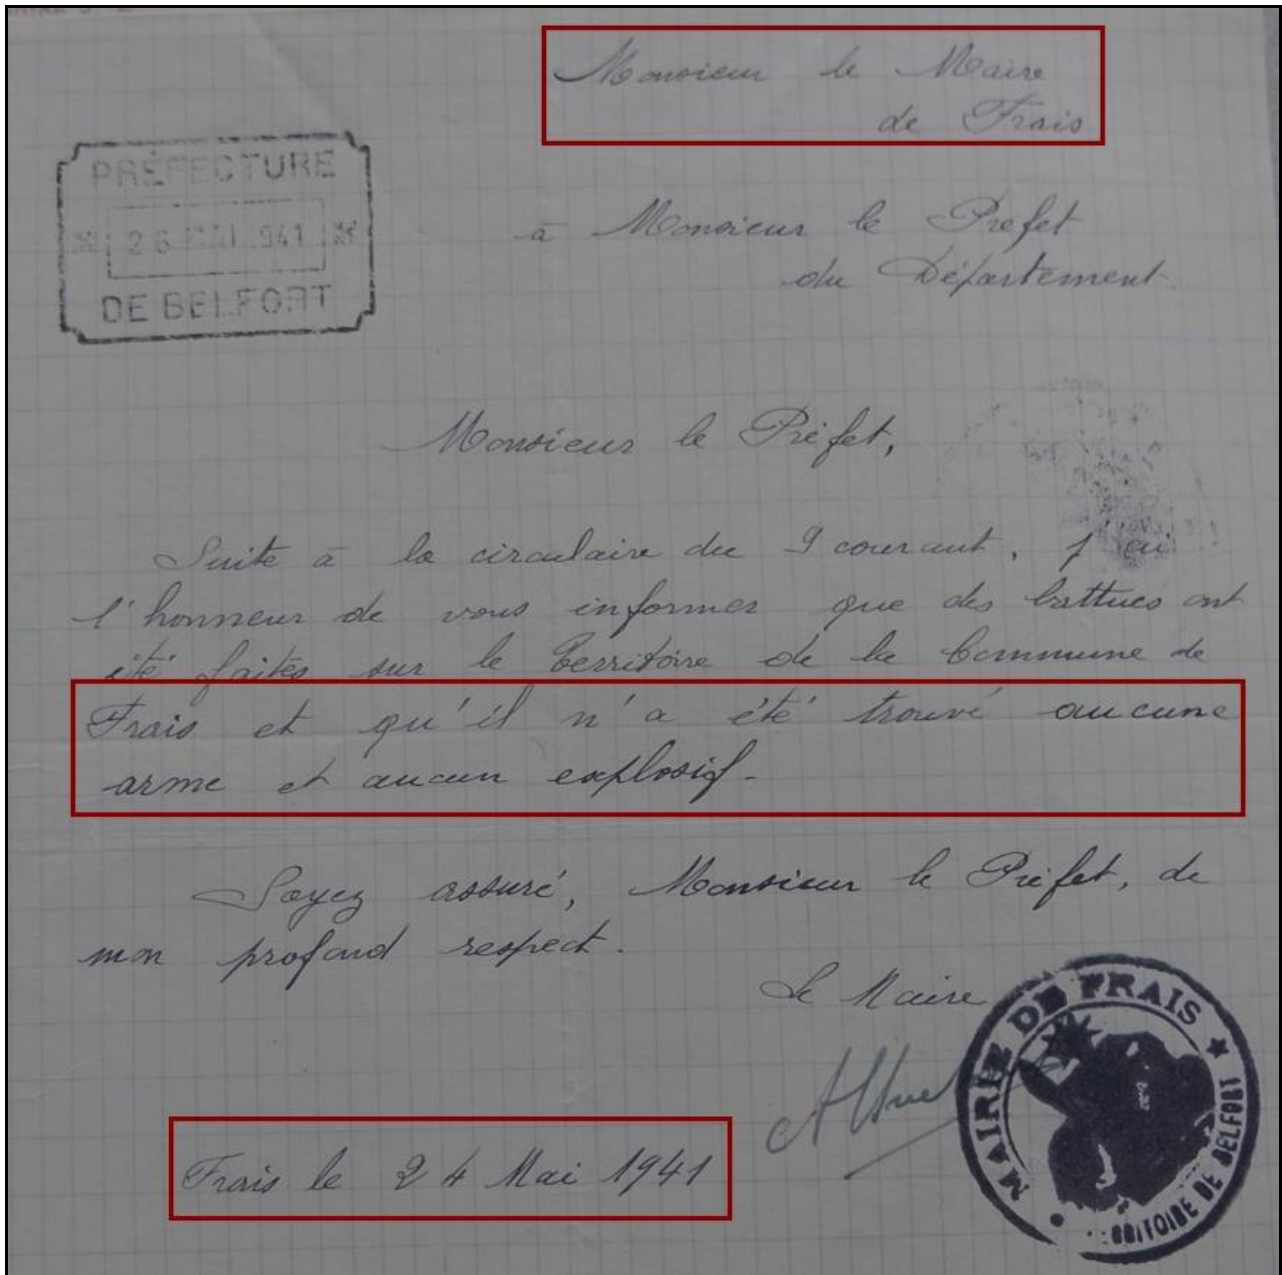 Monsieur le Maire
de Frais
PRÉFECTURE
26 MAI 1941
DE BELFORT
à Monsieur le Préfet
du Département.
Monsieur le Préfet,
Suite à la circulaire du 9 courant, j'ai
l'honneur de vous informer que des battues ont
été faites sur le territoire de la Commune de
Frais et qu'il n'a été trouvé aucune
arme et aucun explosif.
Soyez assuré, Monsieur le Préfet, de
mon profond respect.
Le Maire
MAIRIE DE FRAIS
TERRITOIRE DE BELFORT
Frais le 24 Mai 1941